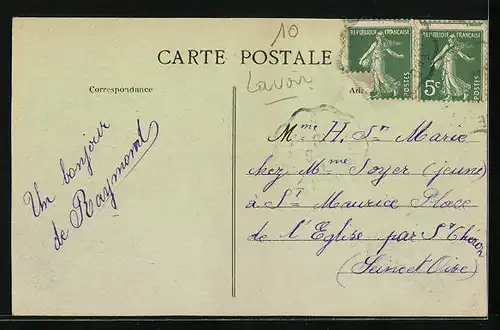 10
CARTE POSTALE
Lavoir
RÉPUBLIQUE FRANÇAISE
POSTES
RÉPUBLIQUE FRANÇAISE
5c
POSTES
Correspondance
Un bonjour
de Raymond
Mme H. St Marie
chez Mme Soyer (jeune)
à St Maurice Place
de l'Eglise par St Chéron
(Seine et Oise)